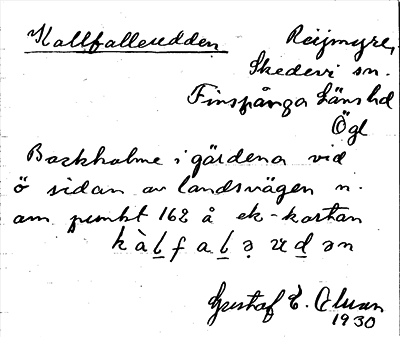 Kallfalleudden Reijmyre,
Skedevi sn.
Finspånga Länshd
Ögl
Backholme i gärdena vid
ö sidan av landsvägen n.
om punkt 162 å ek-kartan
k à l f a l ə u d ə n
Gustaf E.
1930